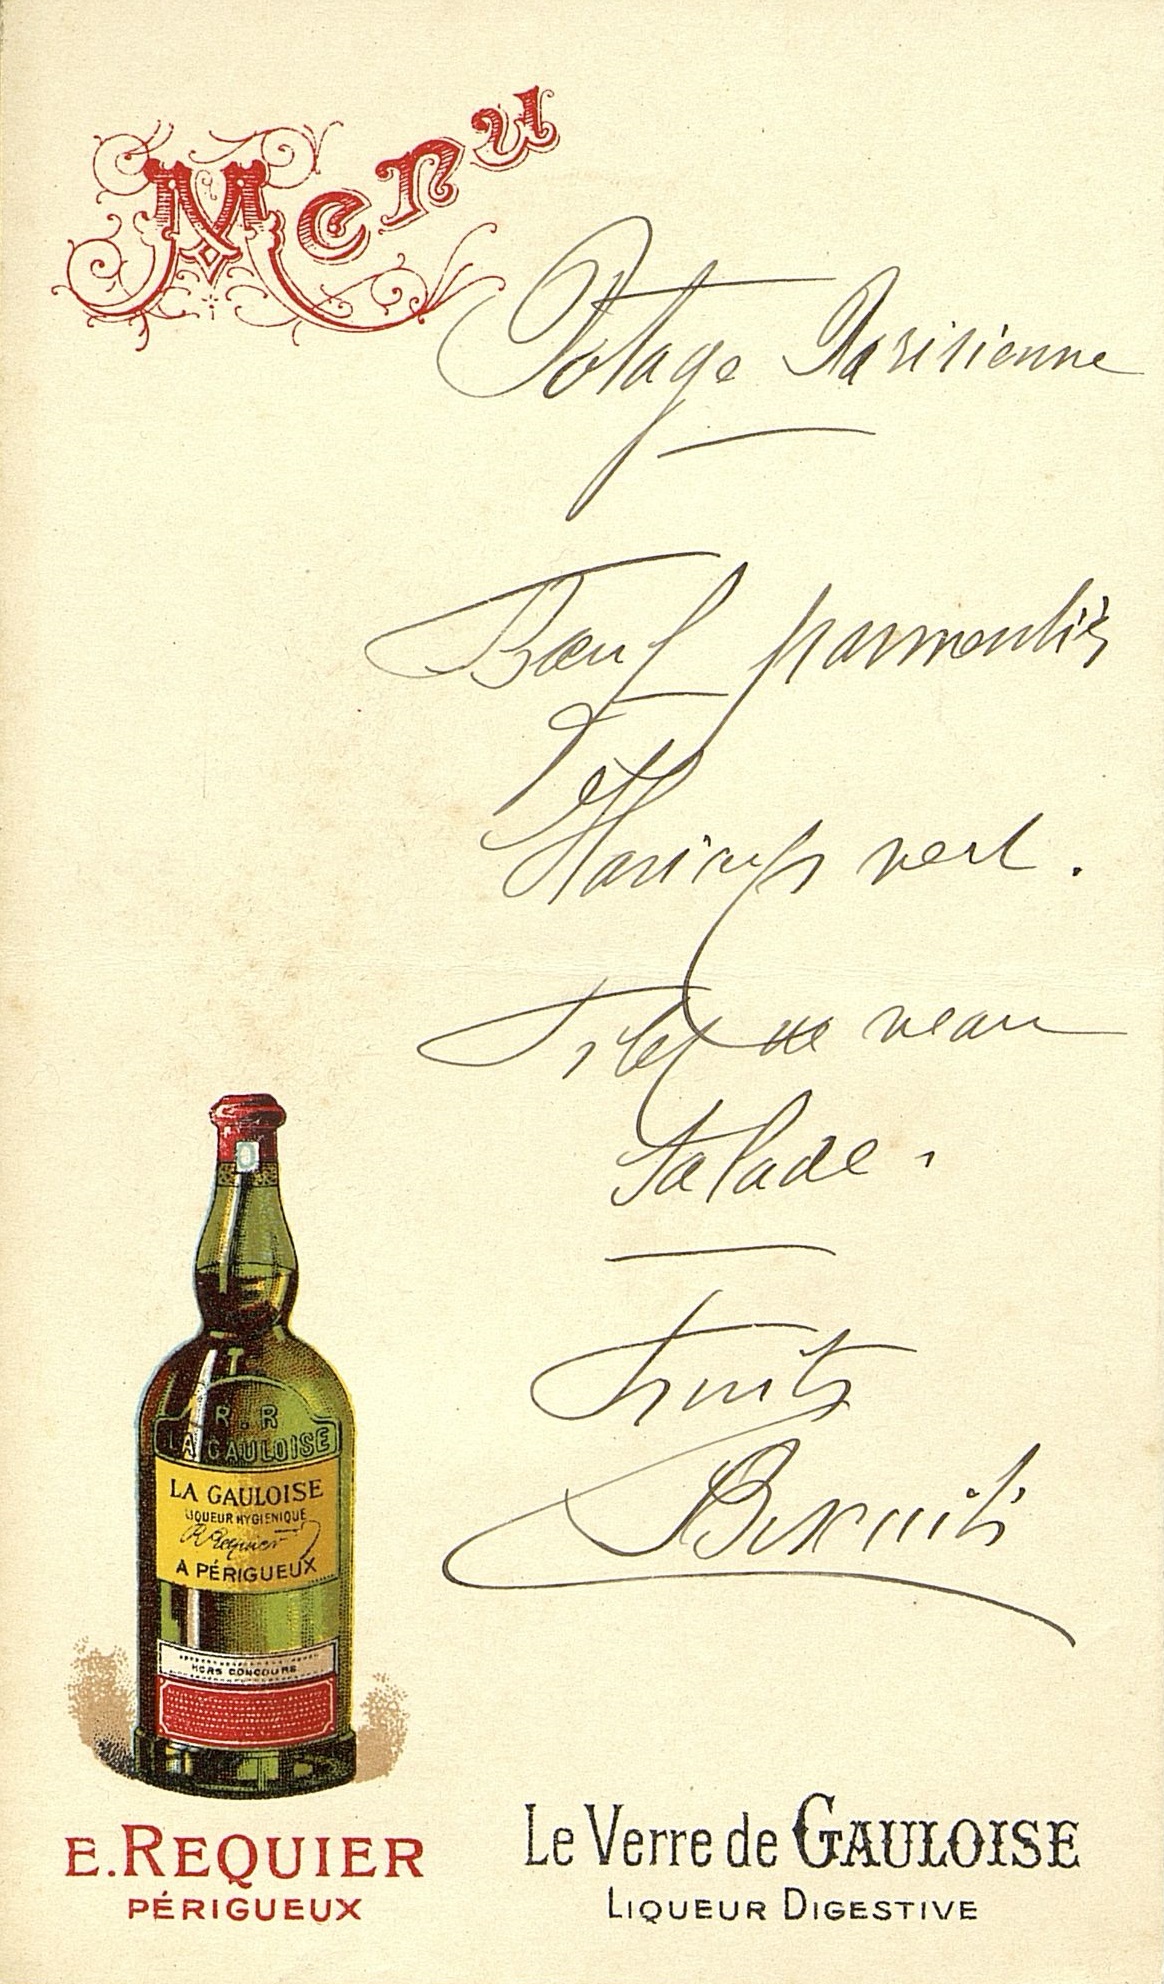 Menu
Potage Parisienne
Bœuf parmentier
et
Haricots vert.
Filet de veau
Salade.
Fruits
Biscuits
T.
R.R
LA GAULOISE
LA GAULOISE
LIQUEUR HYGIENIQUE
R Requier
A PÉRIGUEUX
HORS CONCOURS
E. REQUIER
PÉRIGUEUX
Le Verre de GAULOISE
LIQUEUR DIGESTIVE